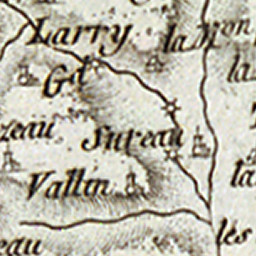 Larry
la Mon
la
Gd
zeau
Sureau
Vallin
la
les
eau